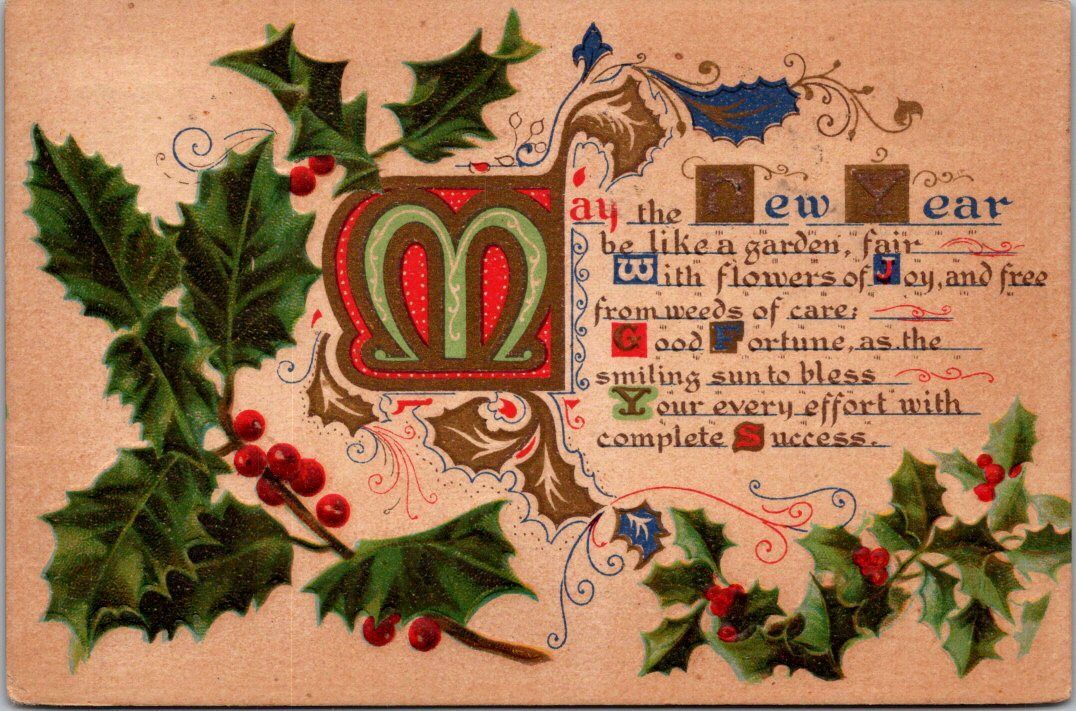 May the New Year
be like a garden, fair
With flowers of Joy, and free
from weeds of care;
Good Fortune, as the
smiling sun to bless
Your every effort with
complete Success.